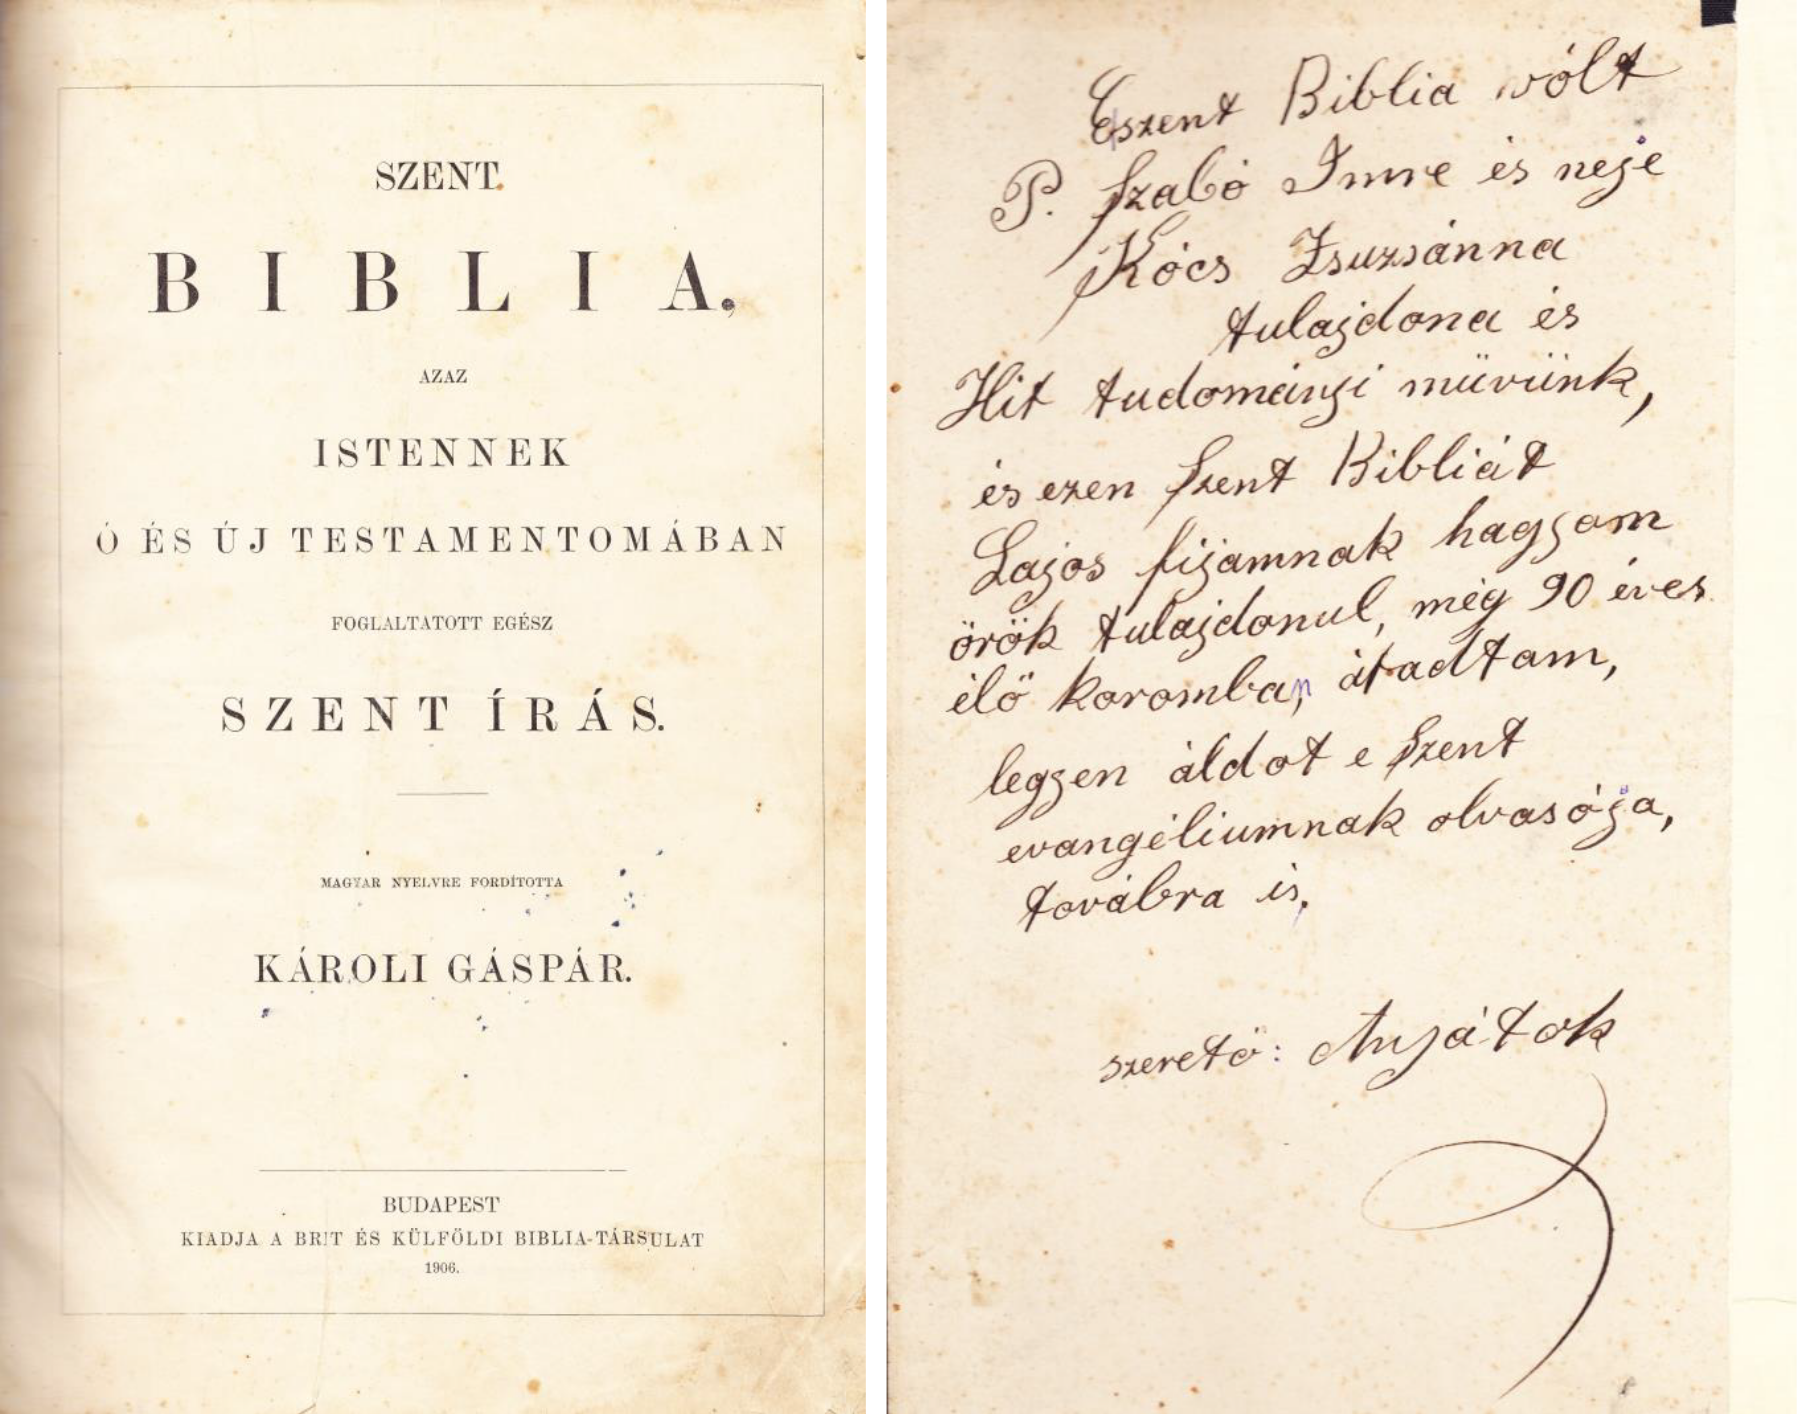 SZENT
BIBLIA,
AZAZ
ISTENNEK
Ó ÉS ÚJ TESTAMENTOMÁBAN
FOGLALTATOTT EGÉSZ
SZENT ÍRÁS.
MAGYAR NYELVRE FORDÍTOTTA
KÁROLI GÁSPÁR.
BUDAPEST
KIADJA A BRIT ÉS KÜLFÖLDI BIBLIA-TÁRSULAT
1906.
Eszent Biblia vólt
P. Szabó Imre és neje
Kócs Zsuzsánna
tulajdona és
Hit tudományi müvünk,
és ezen Szent Bibliát
Lajos fijamnak hagyom
örök tulajdonul, még 90 éves
élő koromban, átadtam,
legyen áldot e Szent
evangéliumnak olvasója,
továbra is,
szerető: Anyátok